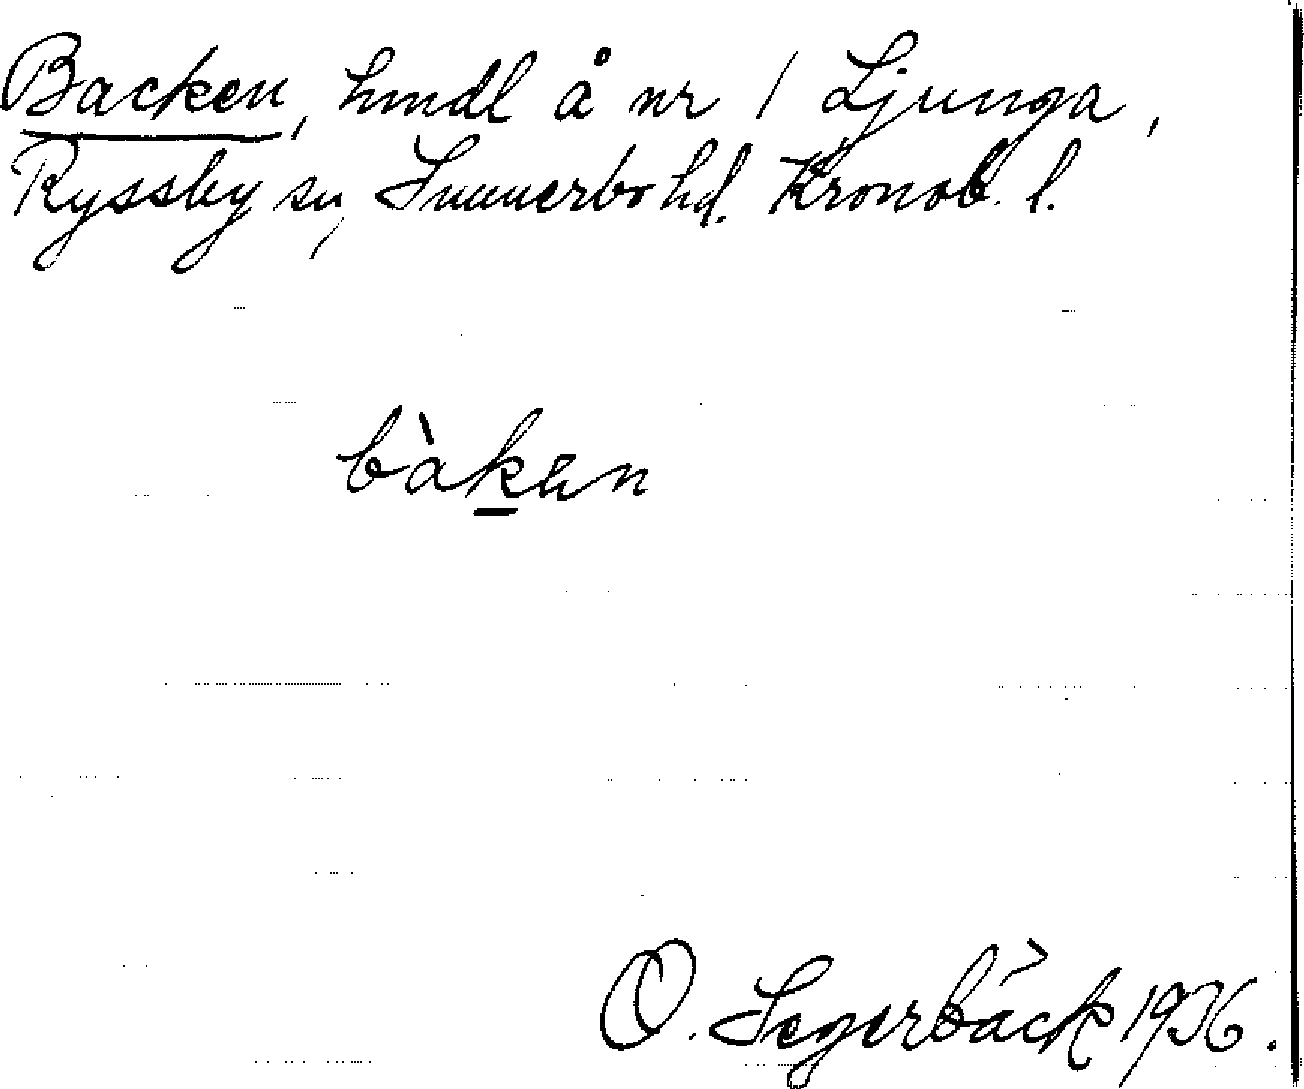 Backen, hmdl å nr 1 Ljunga,
Ryssby sn, Sunnerbo hd. Kronob. l.
bàkɐn
O. Segerbäck 1936.